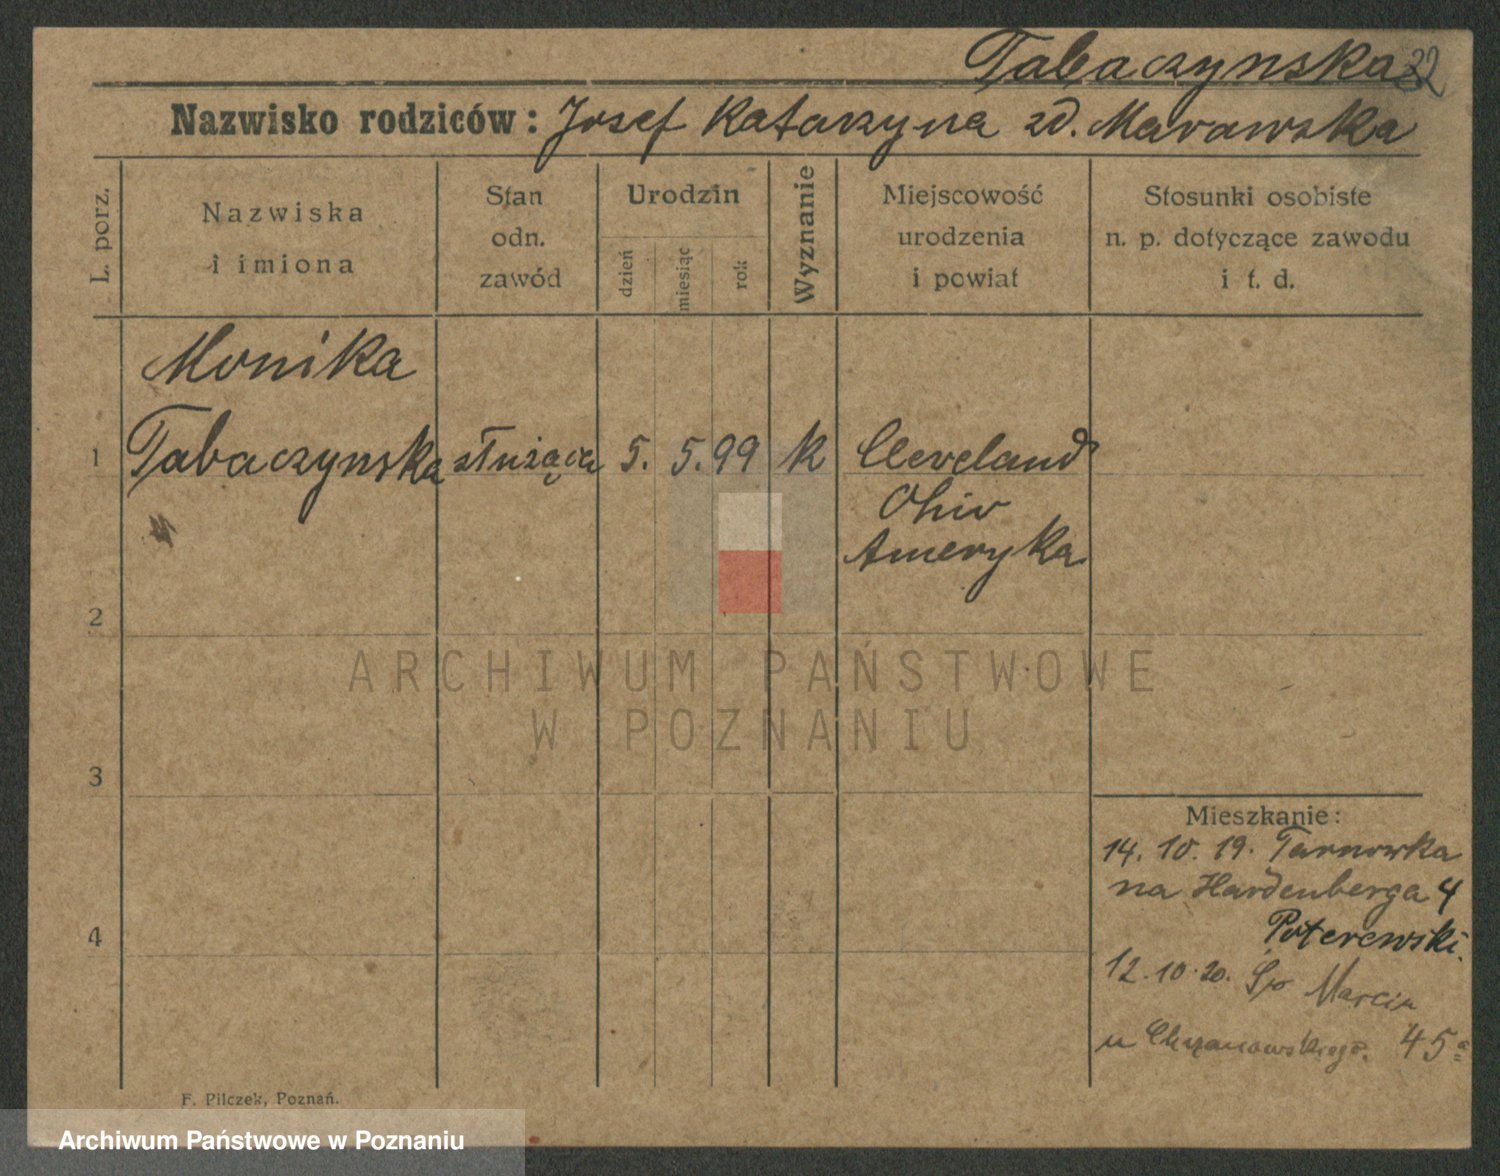 Tabaczynska 32
Nazwisko rodziców: Josef Katarzyna zd. Marawska
L. porz.
Nazwiska
i imiona
Stan
odn.
zawód
Urodzin
dzień
miesiąc
rok
Wyznanie
Miejscowość
urodzenia
i powiat
Stosunki osobiste
n. p. dotyczące zawodu
i t. d.
Monika
1 Tabaczynska służąca 5. 5. 99 k Cleveland
Ohio
Ameryka
2
ARCHIWUM PAŃSTWOWE
W POZNANIU
3
Mieszkanie:
14. 10. 19. Tarnowka
na Hardenberga 4
4
Poterewski.
12.10.20. Marcin
u Chrzanowskiego. 45a
F. Pilczek, Poznań.
Archiwum Państwowe w Poznaniu